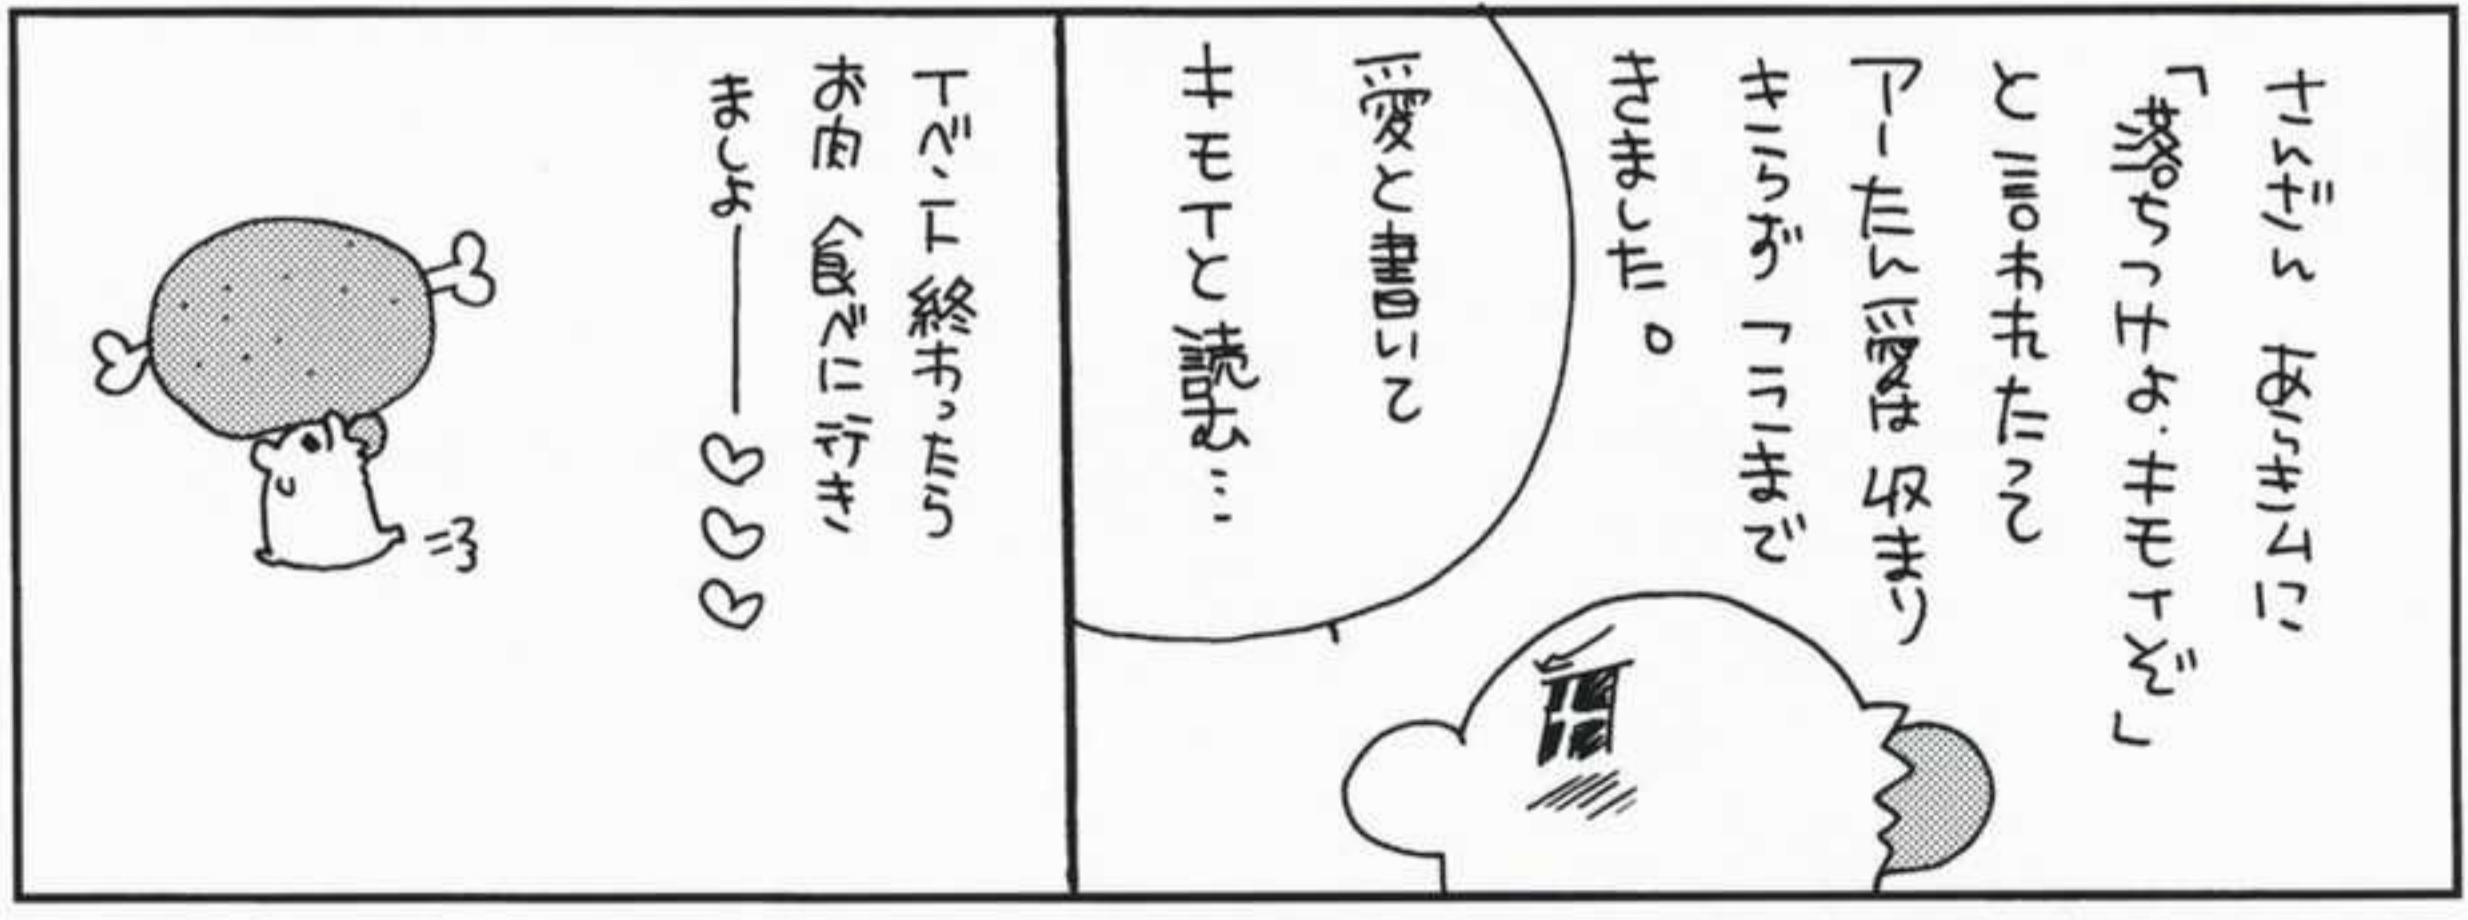 さんざん あっきムに
「落ちつけよ.キモイぞ」
と言われたって
アーたん愛は収まり
きらず「ここまで
きました。
愛と書いて
キモイと読む…
イベント終わったら
お肉 食べに行き
ましょ——♡♡♡